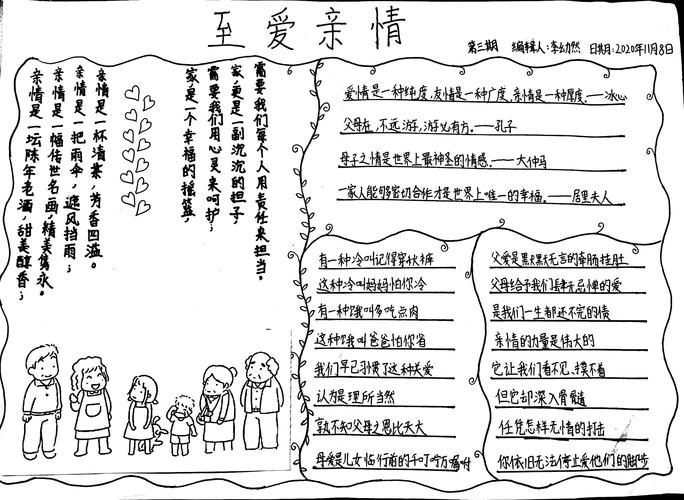 至爱亲情
第三期 编辑人：李 日期：2020年11月8日
亲情是一坛陈年老酒，甜美醇香；
亲情是一幅传世名画，精美隽永。
亲情是一把雨伞，遮风挡雨；
亲情是一杯清茶，芳香四溢。
家是一个幸福的摇篮，
需要我们用心灵来呵护；
家更是一副沉沉的担子
需要我们每个人用责任来担当。
爱情是一种纯度，友情是一种广度，亲情是一种厚度。——冰心
父母在，不远游，游必有方。——孔子
母子之情是世界上最神圣的情感。——大仲马
一家人能够密切合作才是世界上唯一的幸福。——居里夫人
有一种冷叫记得穿秋裤
这种冷叫妈妈怕你冷
有一种饿叫多吃点肉
这种饿叫爸爸怕你省
我们早已习惯了这种关爱
认为是理所当然
孰不知父母之恩比天大
母爱是儿女临行前的千叮咛万嘱咐
父爱是默默无言的牵肠挂肚
父母给予我们肆无忌惮的爱
是我们一生都还不完的债
亲情的力量是伟大的
它让我们看不见、摸不着
但它却深入骨髓
任凭怎样无情的打击
你依旧无法停止爱他们的脚步